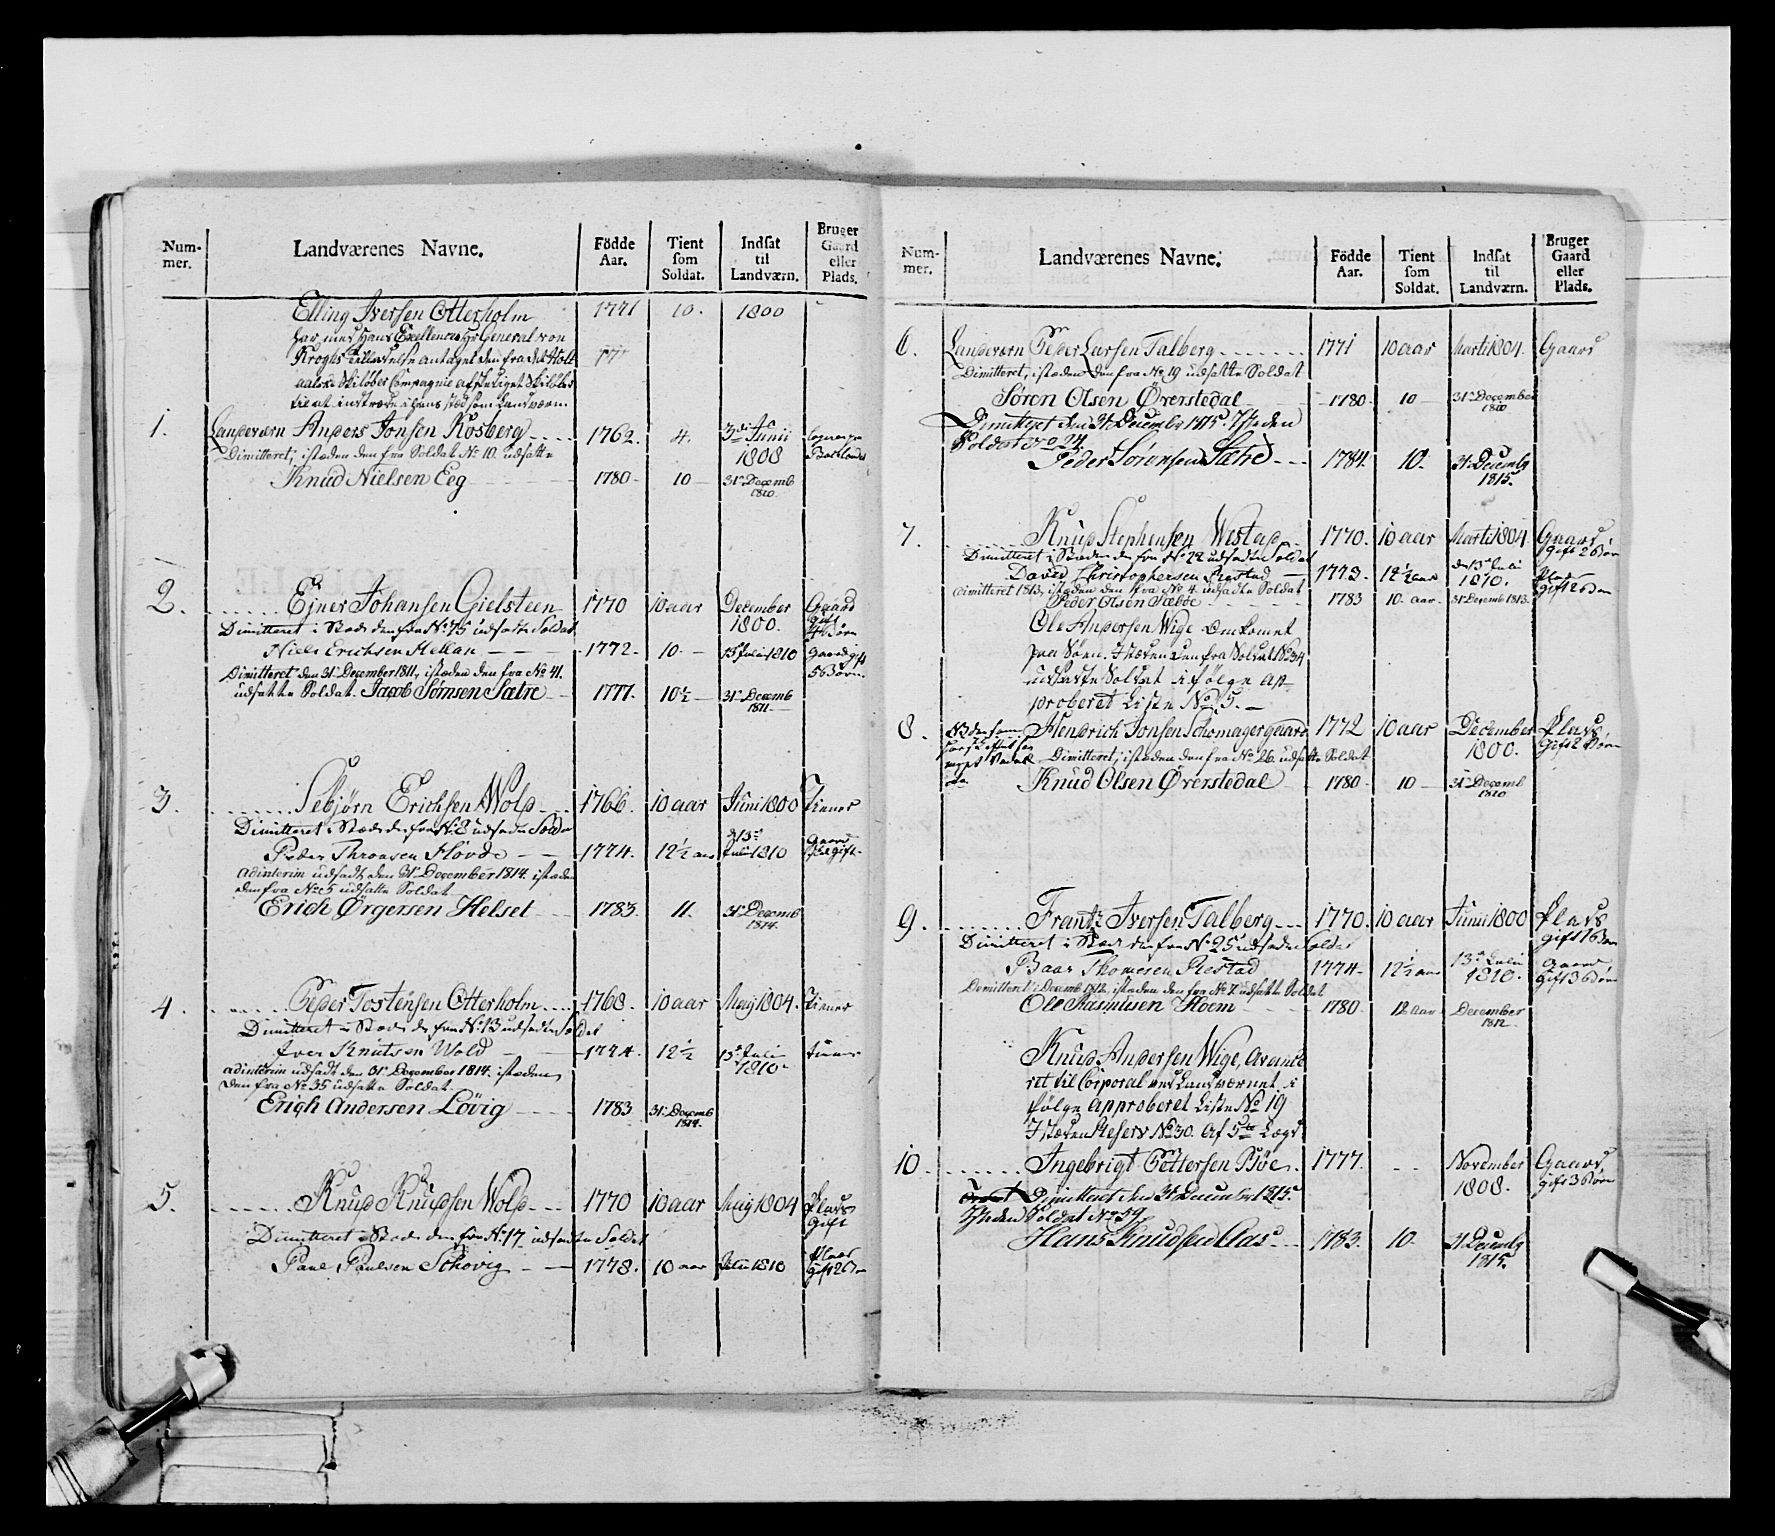 Num-
mer.
Landværenes Navne.
Födde
Aar.
Tient
som
Soldat.
Indsat
til
Landværn.
Bruger
Gaard
eller
Plads.
Elling Iversen Otterholm 1771 10. 1800
har med hans Exellence Hr General von
Kroghs Tilladelse antaget den fra det
Skilöber Compagnie
til at indtræde i hans stæd som Landværn
1. Landeværn Anders Jonsen Rosberg 1762. 4. 3die Junii
1808
Dimitteret, istæden den fra Soldat No 10. udsatte
Knud Nielsen Eeg 1780 10 31 Decemb
1810
2. Ejner Johansen Gielsteen 1770 10 aar December
1800. Gaard
gift
4 Börn
Dimitteret i Stæde den fra No 75 udsatte Soldat
Niels Erichsen Hellan 1772 10 15 Julii 1810 Gaard gift
5 Börn
Dimitteret den 31 December 1811, istæden den fra No 41.
udsatte Soldat. Jacob Sörnsen Sætre 1777. 10½ 31 Decemb
1811
3. Sebjörn Erichsen Wold 1766. 10 aar Junii 1800 Tiener
Dimitteret i Stæde den fra No 8 udsadte Soldat
Peder Thronsen Hovde 1774. 12½ aar d 13
Julii 1810 Gaard
gift
adinterim udsadt den 31 December 1814. istæden
den fra No 5 udsatte Soldat
Erich Örgersen Helset 1783. 11. 31 Decemb
1814
4. Peder Tostensen Otterholm 1768. 10 aar Maij 1804. Tiener
Dimitteret i Stæde den fra No 13 udsadte Soldat
Iver Knutsen Wold 1774. 12½ 13 Julii
1810 tiener
adinterim udsadt den 31 December 1814. istæden
den fra No 35 udsatte Soldat
Erich Andersen Lövig 1783 31 Decemb
1814.
5. Knud Knudsen Wold 1770 10 aar Maij 1804 Plads
gift
Dimitteret i Stæde den fra No 17 udsadte Soldat
Paul Paulsen Schovig 1778. 10 aar Julii 1810 Plads
gift 2 Börn
Num-
mer.
Landværenes Navne.
Födde
Aar.
Tient
som
Soldat.
Indsat
til
Landværn.
Bruger
Gaard
eller
Plads.
6. Landeværn Peder Larsen Talberg 1771 10 aar Marti 1804. Gaard
Dimitteret, istæden den fra No 19 udsatte Soldat
Sören Olsen Överstedal 1780 10 31 December
1810
Dimitteret den 31 December 1815. Isteden
Soldat No 24.
Peder Sörensen Sætre 1784. 10 31 Decembr
1815.
7. Knud Stephensen Westad 1770. 10 aar Marti 1804 Gaard
gift 2 Börn
Dimitteret i Stæden den fra No 22 udsadte Soldat
David Christophersen Prestad 1773. 12½ aar den 13 Julii
1810. Plads
gift 2 Börn
dimitteret 1813, istæden den fra No 4. udsadte Soldat
Peder Olsen Sæböe 1783 10 aar 31 Decemb 1813.
Ole Andersen Wige Omkomet
paa Söen. Istæden den fra Soldat No 34
udsatte Soldat ifölge ap-
proberet Liste No 5.
8. Hendrich Jonsen Schomagergaard 1772 10 aar December
1800. Plads
gift 2 Börn
Dimitteret, istæden den fra No 26. udsatte Soldat
Knud Olsen Överstedal 1780 10 31 Decemb
1810
9. Frantz Iversen Talberg 1770. 10 aar Junii 1800 Plads
gift 1 Barn
Dimitteret i Stæde den fra No 25 udsadte Soldat
Baar Thomesen Prestad 1774 12½ aar 13 Julii
1810. Gaard
gift 3 Börn
Demitteret i Decemb 1812, istæden den fra No 7. udsatte Soldat
Ole Rasmusen Hoem 1780 12 aar December
1812
Knud Andersen Wige, Avance
ret til Corporal ved Landværnet. i
fölge approberet Liste No 19
Istæden Reserv No 30. Af 5te Lægd
10. Ingebrigt Pettersen Böe 1777. November
1808. Gaard
gift 3 Börn
Dimitteret den 31 December 1815.
Isteden Soldat No 59
Hans Knudsen Aas 1783. 10 31 Decembr
1815.